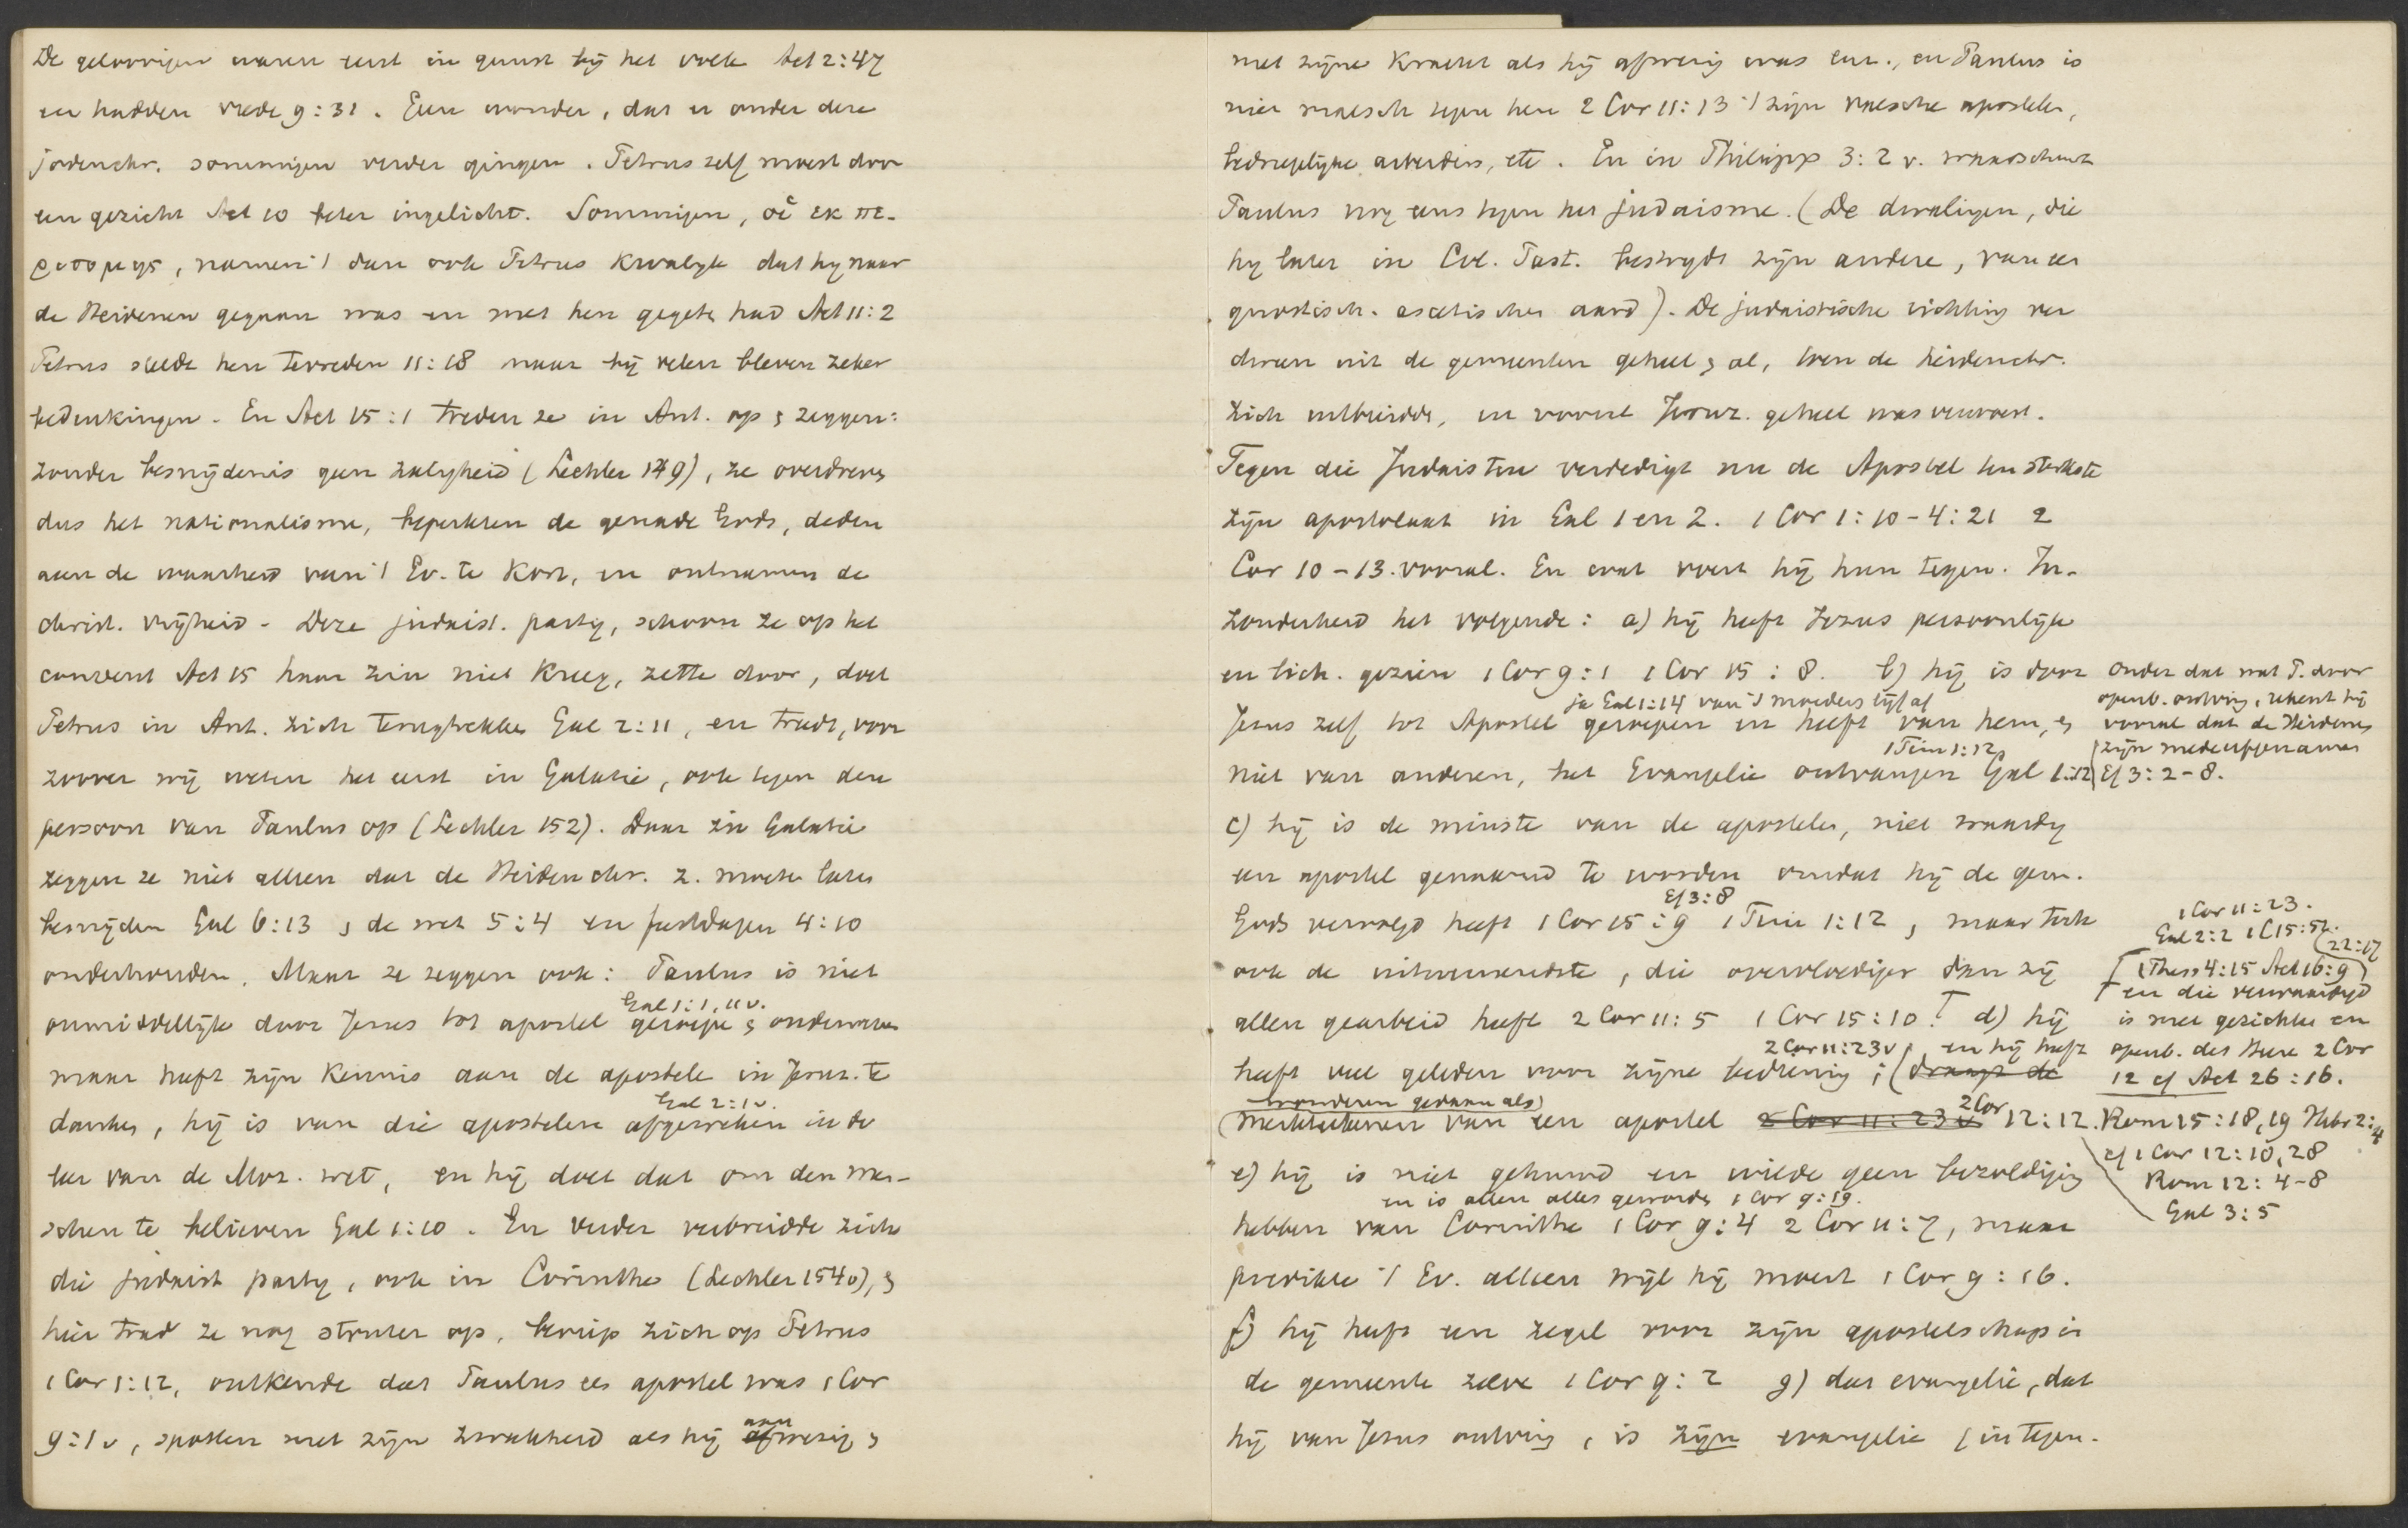 De geloovigen waren eerst in gunst bij het volk Act 2:47
en hadden vrede 9:31. Geen wonder, dat er onder deze
jodenchr. sommigen verder gingen. Petrus zelf moest door
een gezicht Act 10 beter ingelicht. Sommigen, οἱ ἐκ πε-
ριτομῆς, namen 't dan ook Petrus kwalijk dat hy naar
de Heidenen gegaan was en met hen gegeten had Act 11:2
Petrus stelde hen tevreden 11:18 maar bij velen bleven zeker
bedenkingen. En Act 15:1 treden ze in Ant. op & zeggen:
zonder besnijdenis geen zaligheid (Lechler 149), ze overdreven
dus het nationalisme, beperkten de genade Gods, deden
aan de waarheid van 't Ev. te kort, en ontnamen de
christ. vrijheid. Deze judaist. party, schoon ze op het
convent Act 15 haar zin niet kreeg, zette door, deed
Petrus in Ant. zich terugtrekken Gal 2:11, en tradt, voor
zoover wij weten het eerst in Galatie, ook tegen den
persoon van Paulus op (Lechler 152). Daar in Galatie
zeggen ze niet alleen dat de Heidenchr. z. moeten laten
besnijden Gal 6:13 & de wet 5:4 en feestdagen 4:10
onderhouden. Maar ze zeggen ook: Paulus is niet
Gal 1:1, 11 v.
onmiddellijk door Jesus tot apostel geroepen & onderwezen
maar heeft zijn kennis aan de apostelen in Jeruz. te
Gal 2:1 v.
danken, hij is van die apostelen afgeweken in de
leer van de Moz. wet, en hij doet dat om den men-
schen te believen Gal 1:10. En verder verbreidde zich
die judaist party, ook in Corinthe (Lechler 154v), &
hier trad ze nog stouter op, beriep zich op Petrus
1 Cor 1:12, ontkende dat Paulus een apostel was 1 Cor
aan
9:1 v, spotten met zijn zwakheid als hij afwezig &
met zijne kracht als hij afwezig was enz., en Paulus is
niet malsch tegen hen 2 Cor 11:13 't zijn valsche apostelen,
bedriegelijke arbeiders, etc. En in Philipp 3:2 v. waarschuwt
Paulus nog eens tegen het judaisme. (De dwaligen, die
hy later in Col. Past. bestrydt zijn andere, van een
gnostisch. ascetischen aard). De judaistische richting ver
dween uit de gemeenten geheel & al, toen de heidenchr.
zich uitbreidde, en vooral Jeruz. geheel was verwoest.
Tegen die Judaisten verdedigt nu de Apostel ten sterkste
zijn apostolaat in Gal 1 en 2. 1 Cor 1:10-4:21 2
Cor 10-13. vooral. En wat voert hij hun tegen. In-
zonderheid het volgende: a) hij heeft Jezus persoonlijk
en lich. gezien 1 Cor 9:1 1 Cor 15:8. b) hij is door
ja Gal 1:14 van 's moeders lijf af
Jesus zelf tot Apostel geroepen en heeft van hem, &
1 Tim 1:12
niet van anderen, het Evangelie ontvangen Gal 1:12
onder dat wat P. door
openb. ontving, rekent hij
vooral dat de Heidenen
zijn medeerfgenamen
Ef 3:2-8.
c) hij is de minste van de apostelen, niet waardig
een apostel genaamd te worden omdat hij de gem.
Ef 3:8
Gods vervolgd heeft 1 Cor 15:9 1 Tim 1:12, maar toch
ook de uitnemendste, die overvloediger dan zij
allen gearbeid heeft 2 Cor 11:5 1 Cor 15:10. d) hij
1 Cor 11:23.
Gal 2:2 1 C 15:51.
(22:17
1 Thess 4:15 Act 16:9)
en die verwaardigd
is met gezichten en
openb. des Heeren 2 Cor
12 cf Act 26:16.
2 Cor 11:23 v, en hij heeft
heeft veel geleden voor zijne bediening; (draagt de
wonderen gedaan als)
(merkteekenen van een apostel 2 Cor 11:23 v 2 Cor 12:12.
Rom 15:18,19 Hebr 2:4
cf 1 Cor 12:10,28
Rom 12:4-8
Gal 3:5
e) hij is niet gehuwd en wilde geen bezoldiging
en is allen alles geworden 1 Cor 9:19.
hebben van Corinthe 1 Cor 9:4 2 Cor 11:7, maar
predikte 't Ev. alleen wijl hij moest 1 Cor 9:16.
f) hij heeft een zegel voor zijn apostelschap in
de gemeente zelve 1 Cor 9:2 g) dat evangelie, dat
hij van Jesus ontving, is zijn evangelie (in tegen-